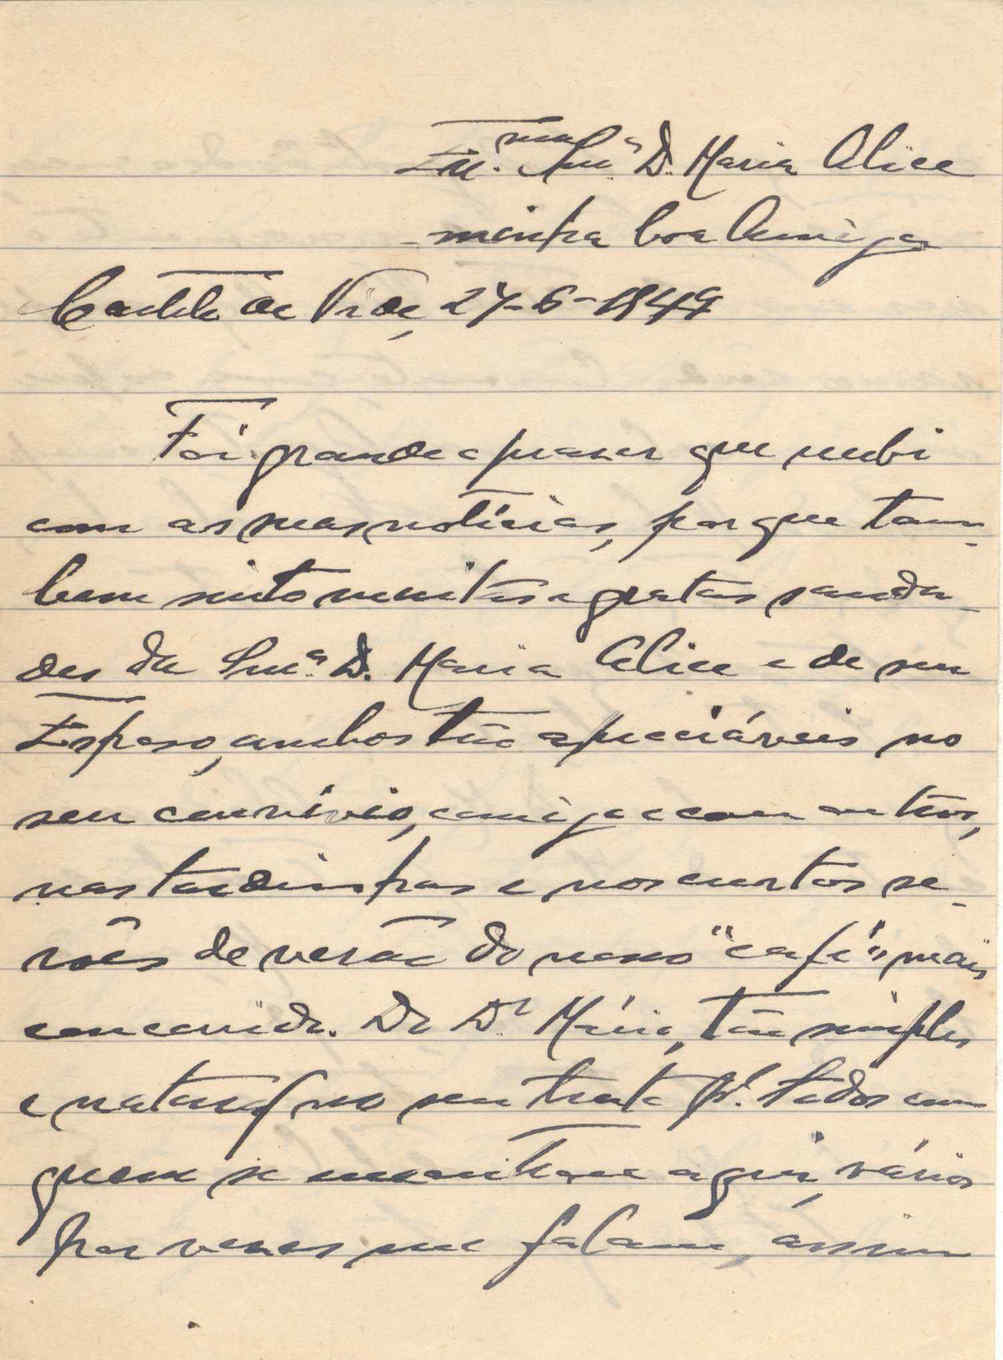 Ex.ma Snr.ª D. Maria Alice
minha boa Amiga
Castelo de Vide, 27-6-1949
Foi grande o prazer que recebi
com as suas notícias, porque tam-
bem sinto muitas e gratas sauda-
des da Snr.ª D. Maria Alice e de seu
Esposo, ambos tão apreciáveis no
seu convivio, comigo e com outros,
nas tardinhas e nos curtos se-
rões de verão do nosso "café", mais
concorrido. Do Dr Mário, tão simples
e natural no seu trato p.ª todos com
quem se encontrava aqui, vários
por vezes me falam, assim